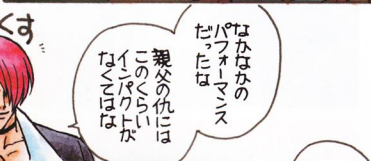 くす
なかなかの
パフォーマンス
だったな
親父の仇には
このくらい
インパクトが
なくてはな